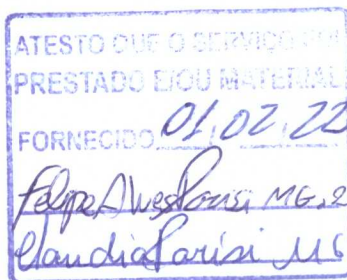 ATESTO QUE O SERVIÇO FOI
PRESTADO E/OU MATERIAL
FORNECIDO 01,02,22
Felipe Alves Parisi MG.2
Claudia Parisi MG